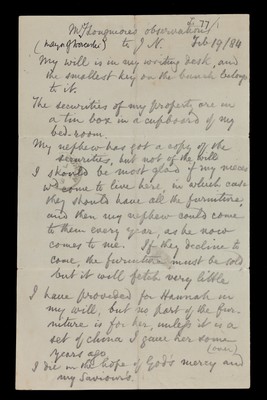 77
Mr Longmore's observations
(Mayor of Worcester) to J N. Feb 19/84
My will is in my writing desk, and
the smallest key on the bunch belongs
to it.
The securities of my property are in
a tin box in a cupboard of my
bed-room.
My nephew has got a copy of the
securities, but not of the will
I should be most glad if my nieces
wd come to live here, in which case
they should have all the furniture,
and then my nephew could come
to them every year, as he now
comes to me. If they decline to
come, the furniture must be sold,
but it will fetch very little
I have provided for Hannah in
my will, but no part of the fur-
niture is for her, unless it is a
set of china I gave her some
years ago (over)
I die in the hope of God's mercy and
my Saviour's.